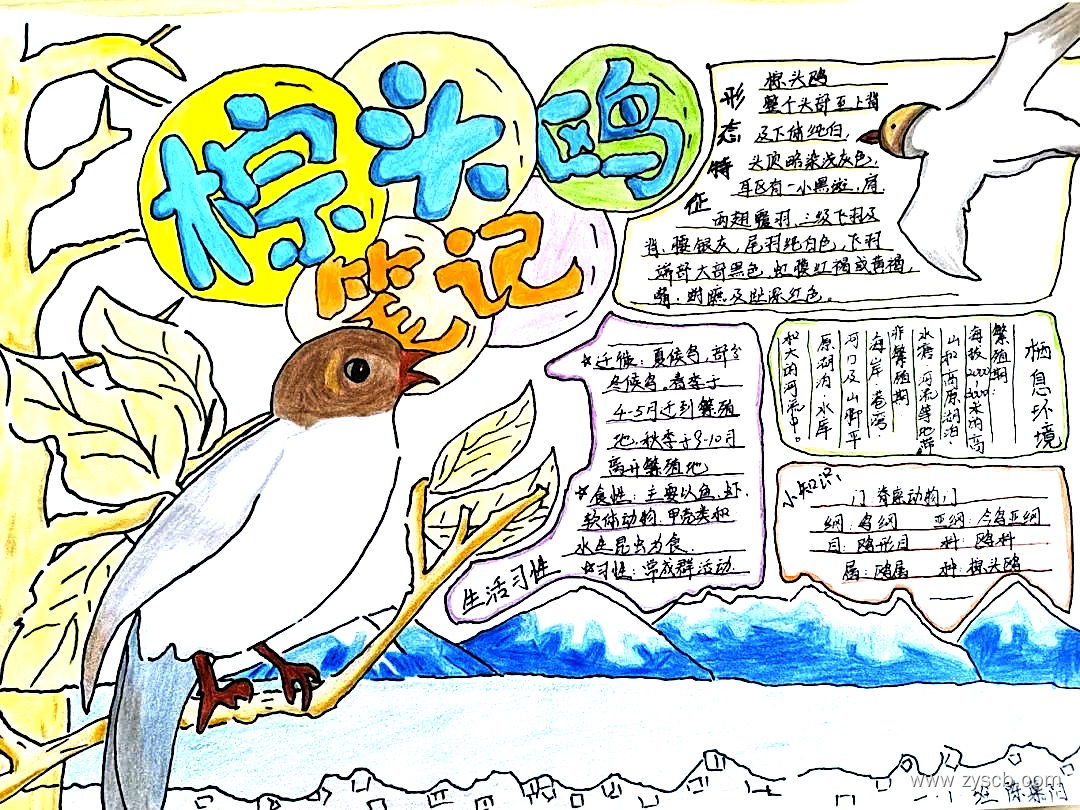 棕头鸥
笔记
形态特征
棕头鸥
整个头部至上背
及下体纯白,
头顶略染浅灰色,
耳区有一小黑斑,肩
两翅覆羽、三级飞羽及
背、腰银灰,尾羽纯白色,飞羽
端部大部黑色,虹膜红褐或黄褐,
嘴、跗蹠及趾深红色。
☆迁徙:夏候鸟,部分
冬候鸟,春季于
4-5月迁到繁殖
地,秋季于9-10月
离开繁殖地
☆食性:主要以鱼、虾、
软体动物、甲壳类和
水生昆虫为食.
☆习性:常成群活动
生活习性
栖息环境
繁殖期:
海拔2000-3000米的高
山和高原湖泊、
水塘、河流等地带
非繁殖期
海岸、港湾、
河口及山脚平
原湖泊、水库
和大的河流中。
小知识:
门 脊座动物门
纲:鸟纲 亚纲:今鸟亚纲
目:鸥形目 科:鸥科
属:鸥属 种:棕头鸥
www.zyscb.com